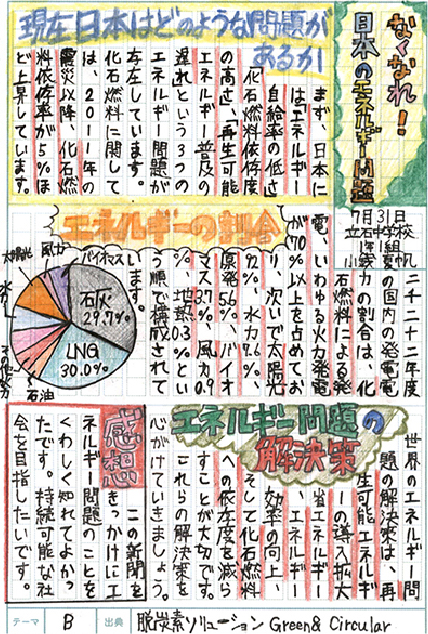 なくなれ！
日本のエネルギー問題
7月31日
立石中学校
1年1組
現在日本はどのような問題が
あるか
まず、日本に
はエネルギー
自給率の低さ、
化石燃料依存度
の高さ、再生可能
エネルギー普及の
遅れという3つの
エネルギー問題が
存在しています。
化石燃料に関して
は、2011年の
震災以降、化石燃
料依存率が5%ほ
ど上昇しています。
エネルギーの割合
二千二十二年度
の国内の発電電
力の割合は、化
石燃料による発
電、いわゆる火力発電
が70%以上を占めてお
り、次いで太陽光
9.2%、水力7.6%、
原発5.6%、バイオ
マス3.7%、風力0.9
%、地熱0.3%とい
う順で構成されて
います。
バイオマス
風力
太陽光
水力
その他火力
石油
石灰
29.7%
LNG
30.0%
エネルギー問題の
解決策
世界のエネルギー問
題の解決策は、再
生可能エネルギ
ーの導入拡大
省エネルギー
、エネルギー
効率の向上、
そして化石燃料
への依存度を減ら
すことが大切です。
これらの解決策を
心がけていきましょう。
感想
この新聞を
きっかけにエ
ネルギー問題のことを
くわしく知れてよかっ
たです。持続可能な社
会を目指したいです。
テーマ B 出典 脱炭素ソリューション Green& Circular